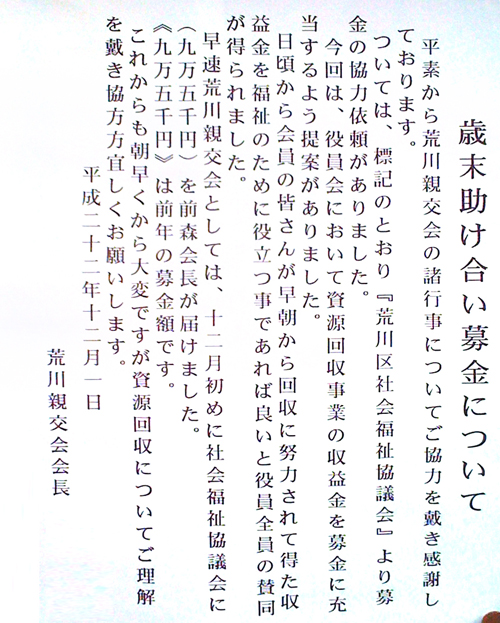 歳末助け合い募金について
平素から荒川親交会の諸行事についてご協力を戴き感謝し
ております。
ついては、標記のとおり『荒川区社会福祉協議会』より募
金の協力依頼がありました。
今回は、役員会において資源回収事業の収益金を募金に充
当するよう提案がありました。
日頃から会員の皆さんが早朝から回収に努力されて得た収
益金を福祉のために役立つ事であれば良いと役員全員の賛同
が得られました。
早速荒川親交会としては、十二月初めに社会福祉協議会に
（九万五千円）を前森会長が届けました。
《九万五千円》は前年の募金額です。
これからも朝早くから大変ですが資源回収についてご理解
を戴き協方方宜しくお願いします。
平成二十二年十二月一日
荒川親交会会長